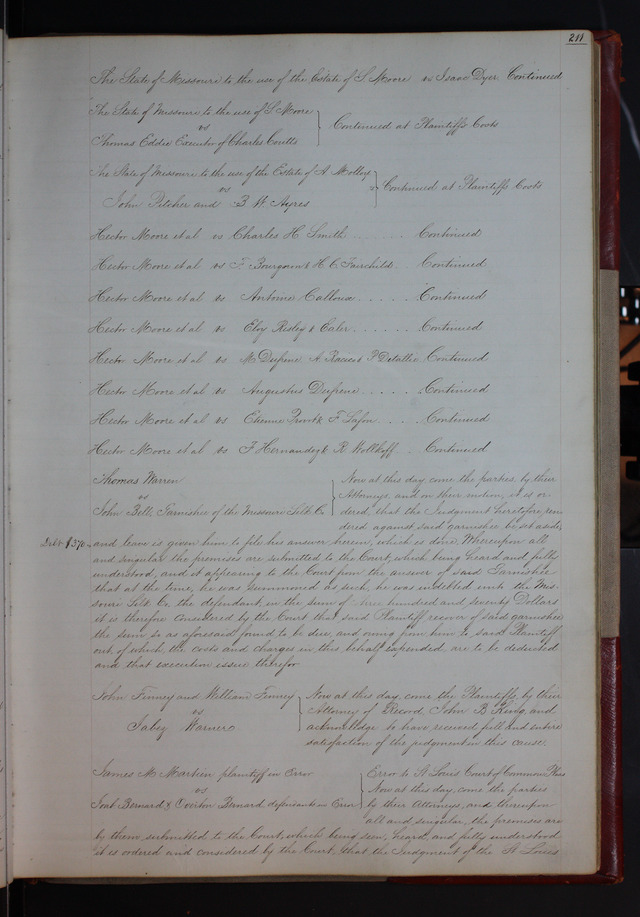 211
The State of Missouri to the use of the Estate of S Moore vs Isaac Dyer Continued
The State of Missouri to the use of S Moore
vs
Thomas Eddie Executor of Charles Coutts
Continued at Plaintiffs Costs
The State of Missouri to the use of the Estate of A
vs
John Pitcher and B. W. Ayres
Continued at Plaintiffs Costs
Hector Moore et al vs Charles H. Smith . . . . . Continued
Hector Moore et al vs F Bourgoin & H. C. Fairchild . . Continued
Hector Moore et al vs Antoine . . . . . Continued
Hector Moore et al vs Risley & . . . . . Continued
Hector Moore et al vs M Dufrene A Racicot P Continued
Hector Moore et al vs Augustus Dufrene . . . . . Continued
Hector Moore et al vs Etienne & F Lafon . . . Continued
Hector Moore et al vs F Hernandez & R Wolkoff . . Continued
Thomas Warren
vs
John Bell, Garnishee of the Missouri Silk Co
Now at this day come the parties by their
Attorneys and on their motion, it is or
dered, that the Judgment heretofore ren
dered against said garnishee be set aside,
Debt $370
and leave is given him to file his answer herein, which is done. Whereupon all
and singular the premises are submitted to the Court, which being heard and fully
understood, and it appearing to the Court from the answer of said Garnishee
that at the time, he was summoned as such, he was indebted unto the Mis-
souri Silk Co. the defendant, in the sum of Three hundred and seventy Dollars
it is therefore considered by the Court that said Plaintiff recover of said garnishee
the sum so as aforesaid found to be due, and owing from him to said Plaintiff
out of which the costs and charges in this behalf expended are to be deducted
and that execution issue therefor
John Finney and William Finney
vs
Jabez Warner
Now at this day, come the Plaintiffs by their
Attorney of Record, John B King, and
acknowledge to have received full and entire
satisfaction of the judgment in this cause.
James M. Martien plaintiff in Error
vs
Joab Bernard & Overton Bernard defendants in Error
Error to St Louis Court of Common Pleas
Now at this day, come the parties
by their Attorneys, and thereupon
all and singular, the premises are
by them submitted to the Court, which being seen, heard, and fully understood
it is ordered and considered by the Court, that the Judgment of the St Louis